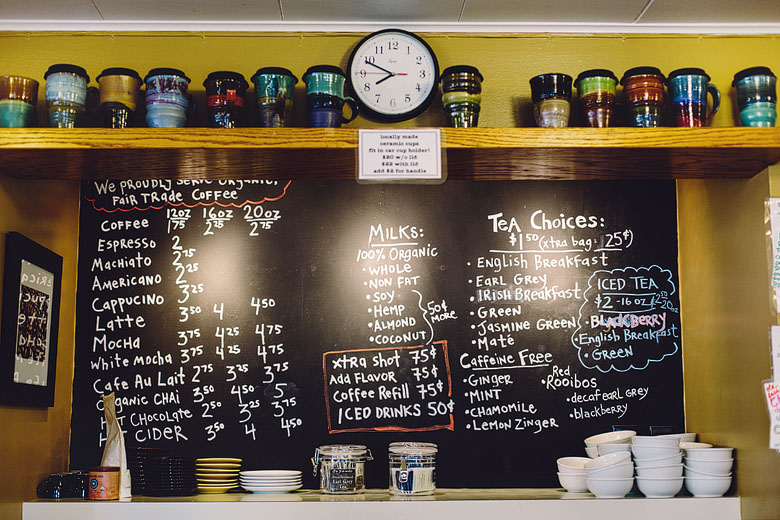 12 1 2 3 4 5 6 7 8 9 10 11
locally made
ceramic cups
fit in car cup holder!
$20 w/o lid
$22 with lid
add $2 for handle
We Proudly Serve Organic,
Fair Trade Coffee
12oz 16oz 20oz
Coffee 1.75 2.25 2.75
Espresso 2
Machiato 2.25
Americano 2.25
Cappucino 3.50 4 4.50
Latte 3.75 4.25 4.75
Mocha 3.75 4.25 4.75
White Mocha 3.75 4.25 4.75
Cafe Au Lait 2.75 3.25 3.75
Organic Chai 3.50 4.50 5
Hot Chocolate 2.50 3.25 3.75
Cider 3.50 4 4.50
Milks:
100% Organic
• Whole
• Non Fat
• Soy
• Hemp
• Almond
• Coconut
50¢
more
xtra shot 75¢
Add Flavor 75¢
Coffee Refill 75¢
ICED DRINKS 50¢
Tea Choices:
$1.50 (xtra bag: 25¢)
• English Breakfast
• Earl Grey
• Irish Breakfast
• Green
• Jasmine Green
• Maté
Caffeine Free
• Ginger
• Mint
• Chamomile
• Lemon Zinger
• Red
Rooibos
• decaf earl grey
• blackberry
ICED TEA
$2 - 16oz
• BLACKBERRY
• English Breakfast
• Green
Earl Grey
Tea